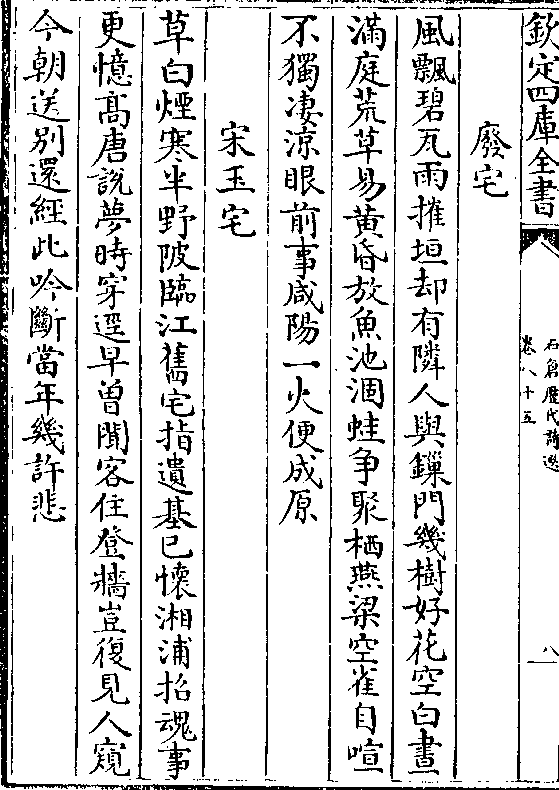 欽定四庫全書
石倉歷代詩選
卷八十五
八
廢宅
風飄碧瓦雨摧垣却有隣人與鏁門幾樹好花空白晝
滿庭荒草易黃昏放魚池涸蛙争聚栖燕梁空雀自喧
不獨凄涼眼前事咸陽一火便成原
宋玉宅
草白煙寒半野陂臨江舊宅指遺基已懷湘浦招魂事
更憶高唐說夢時穿逕早曾聞客住登牆豈復見人窺
今朝送别還經此吟斷當年幾許悲